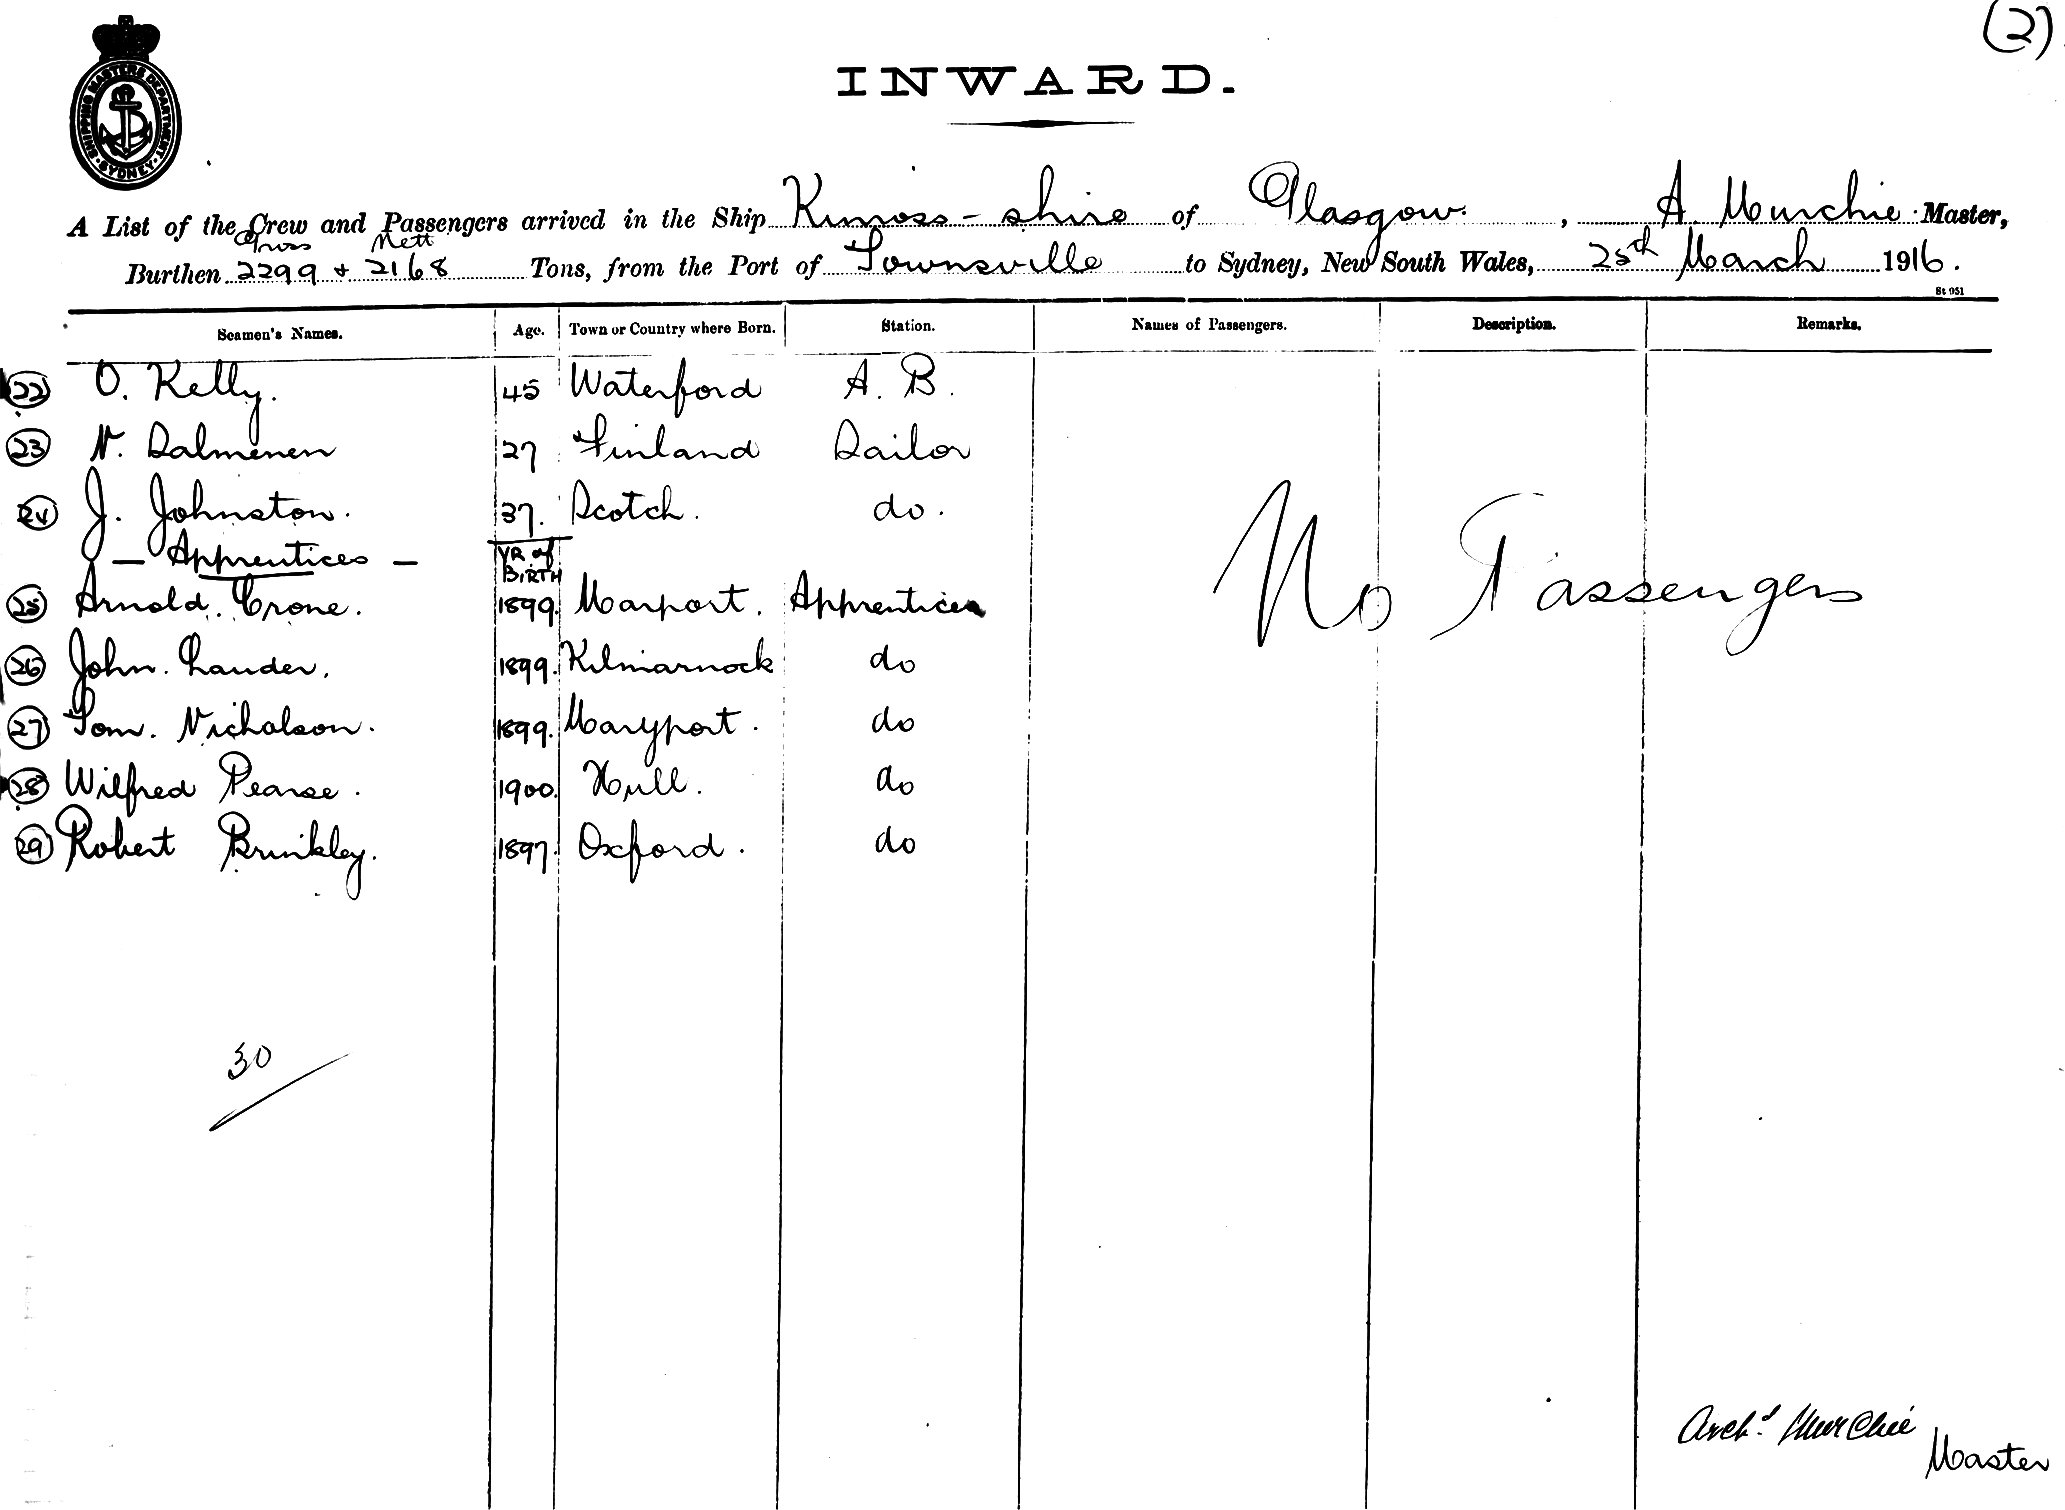 (2)
SHIPPING MASTERS DEPARTMENT · SYDNEY ·
INWARD.
A List of the Crew and Passengers arrived in the Ship Kinross-shire of Glasgow. , A. Murchie. Master,
Gross Nett
Burthen 2299 & 2168 Tons, from the Port of Townsville to Sydney, New South Wales, 25th March 1916.
St 951
Seamen's Names. Age. Town or Country where Born. Station. Names of Passengers. Description. Remarks.
22 O. Kelly. 45 Waterford A. B.
23 N. Salmenen 27 Finland Sailor
24 J. Johnston. 37. Scotch. do.
— Apprentices — YR of BIRTH
25 Arnold. Crone. 1899. Marport. Apprentice
No Passengers
26 John. Lauder. 1899. Kilmarnock do
27 Tom. Nicholson. 1899. Maryport. do
28 Wilfred Pearse. 1900. Hull. do
29 Robert Brinkley. 1897. Oxford. do
30
Archd. Murchie
Master